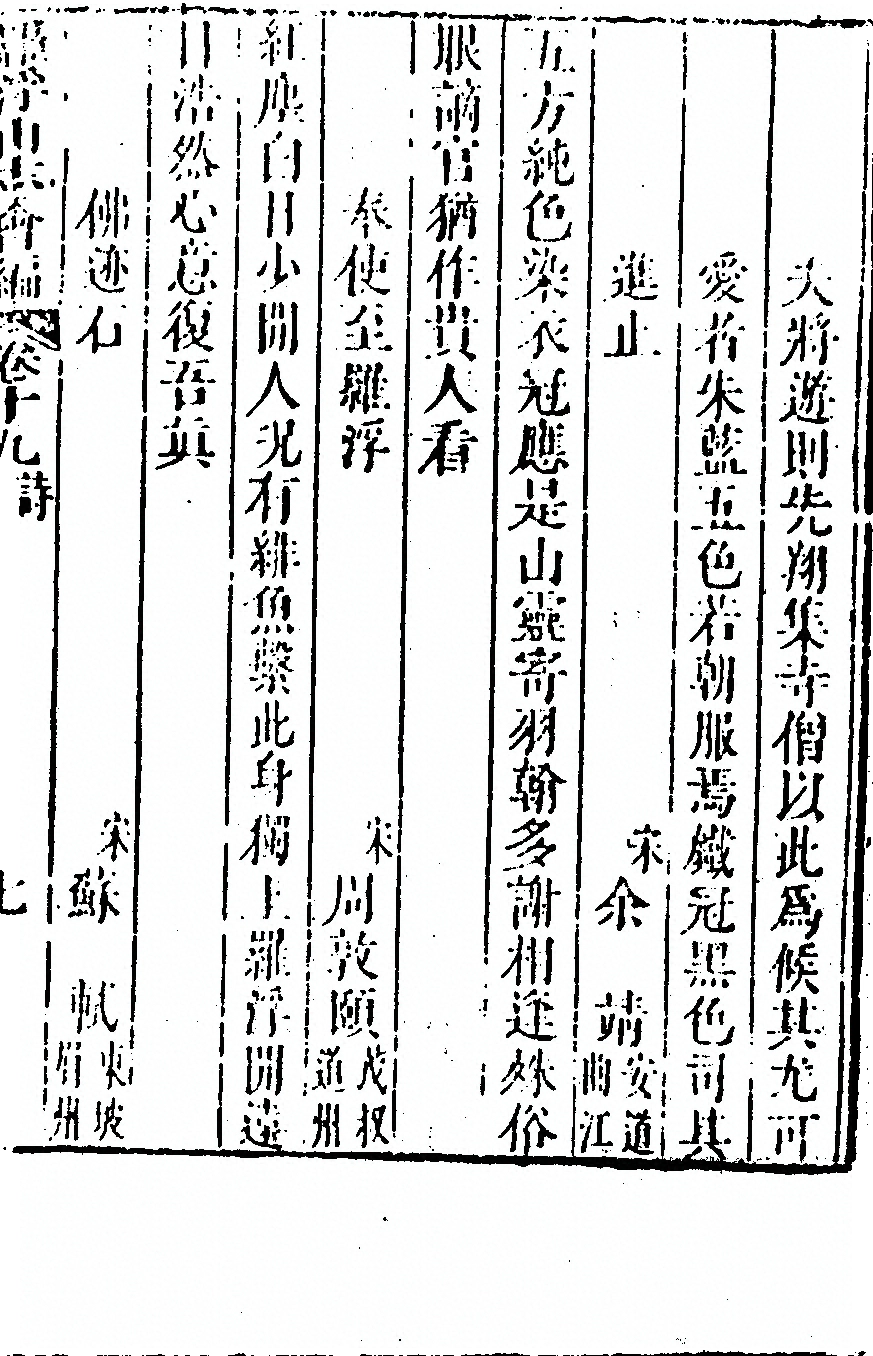 大將遊則先翔集寺僧以此爲候其尤可
愛者朱藍五色若朝服焉鐵冠黑色司其
進止
宋余靖安道曲江
五方純色染衣冠應是山靈寄羽翰多謝相逢殊俗
眼謫官猶作貴人看
奉使至羅浮
宋周敦頤茂叔道州
紅塵白日少閒人況有緋魚繫此身獨上羅浮閒遠
目浩然心意復吾眞
佛迹石
宋蘇軾東坡眉州
羅浮山志會編卷十九詩
七